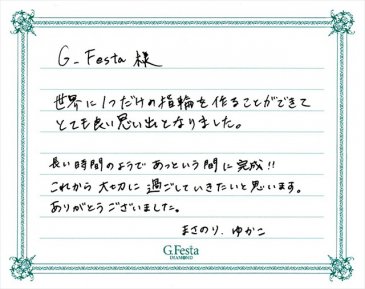 G_Festa 様
世界に1つだけの指輪を作ることができて
とても良い思い出となりました。
長い時間のようであっという間に完成!!
これから大切に過ごしていきたいと思います。
ありがとうございました。
まさのり、ゆかこ
G.Festa
DIAMOND